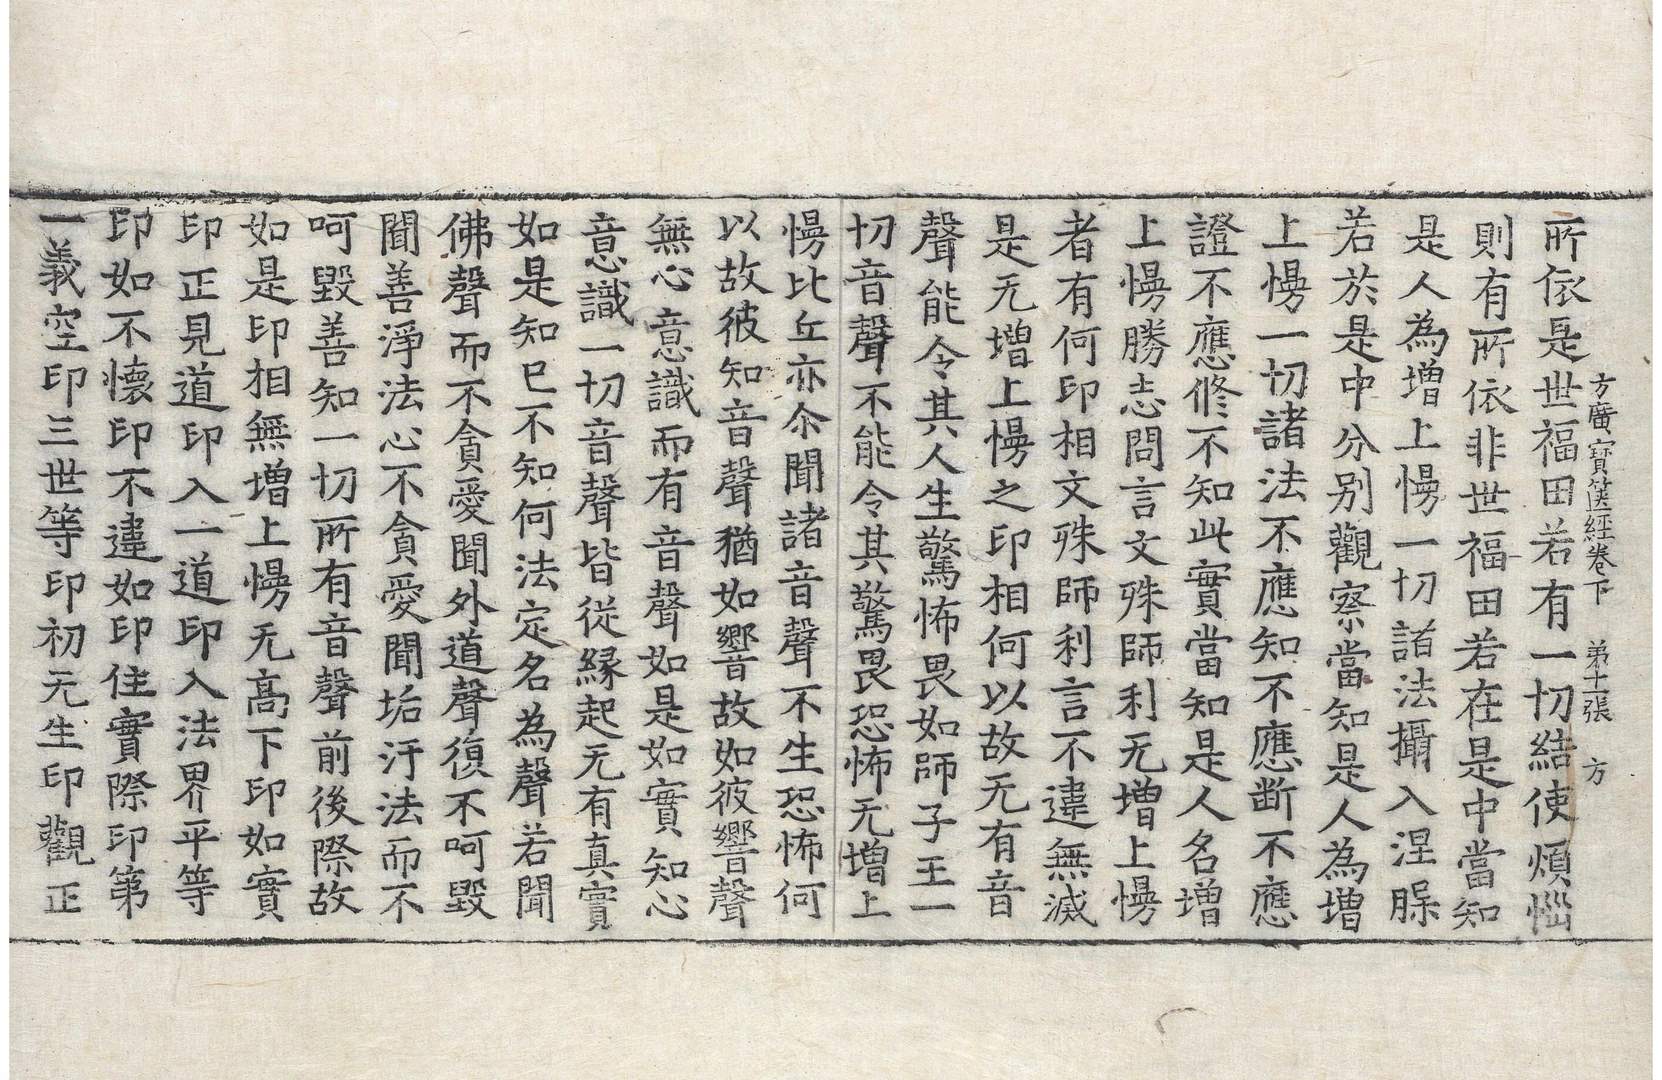 方廣寶篋經卷下 第十一張 方
所依是世福田若有一切結使煩惱
則有所依非世福田若在是中當知
是人為增上慢一切諸法攝入涅槃
若於是中分別觀察當知是人為增
上慢一切諸法不應知不應斷不應
證不應修不知此實當知是人名增
上慢勝志問言文殊師利无增上慢
者有何印相文殊師利言不違無滅
是无增上慢之印相何以故无有音
聲能令其人生驚怖畏如師子王一
切音聲不能令其驚畏恐怖无增上
慢比丘亦尒聞諸音聲不生恐怖何
以故彼知音聲猶如響故如彼響聲
無心意識而有音聲如是如實知心
意識一切音聲皆從緣起无有真實
如是知已不知何法定名為聲若聞
佛聲而不貪愛聞外道聲復不呵毀
聞善淨法心不貪愛聞垢汙法而不
呵毀善知一切所有音聲前後際故
如是印相無增上慢无高下印如實
印正見道印入一道印入法界平等
印如不懷印不違如印住實際印第
一義空印三世等印初无生印觀正